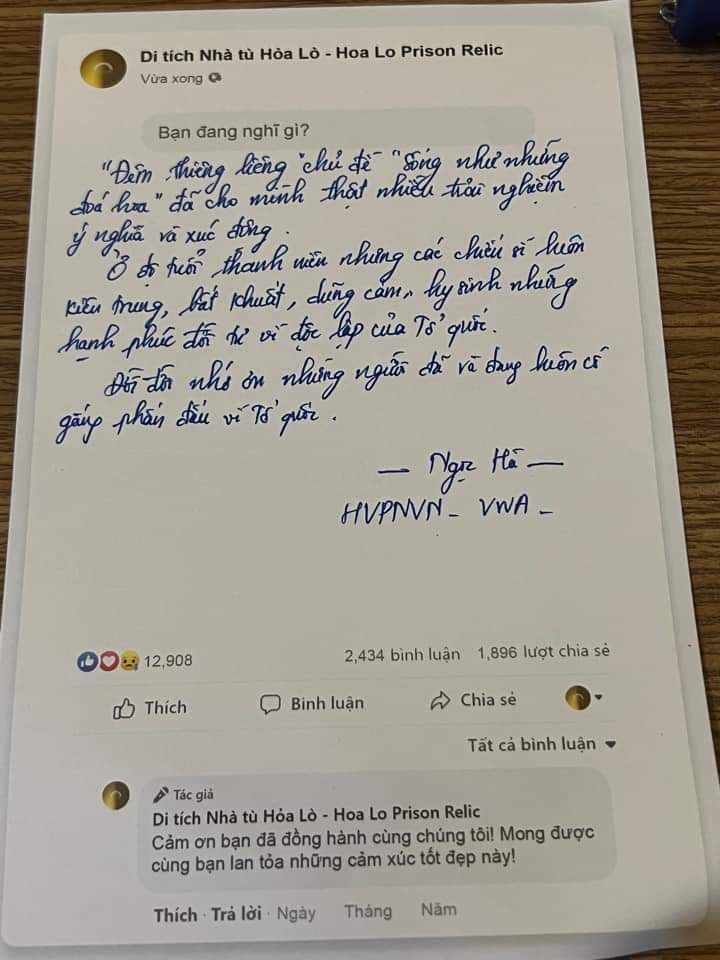 Di tích Nhà tù Hỏa Lò - Hoa Lo Prison Relic
Vừa xong
Bạn đang nghĩ gì?
"Đêm thiêng liêng "chủ đề "Sống như những
đoá hoa" đã cho mình thật nhiều trải nghiệm
ý nghĩa và xúc động.
Ở độ tuổi thanh niên nhưng các chiến sĩ luôn
kiên trung, bất khuất, dũng cảm, hy sinh những
hạnh phúc đôi tư vì độc lập của Tổ quốc.
Đời đời nhớ ơn những người đã và đang luôn cố
gắng phấn đấu vì Tổ quốc.
— Ngọc Hà —
HVPNVN - VWA -
12,908
2,434 bình luận 1,896 lượt chia sẻ
Thích Bình luận Chia sẻ
Tất cả bình luận
Tác giả
Di tích Nhà tù Hỏa Lò - Hoa Lo Prison Relic
Cảm ơn bạn đã đồng hành cùng chúng tôi! Mong được
cùng bạn lan tỏa những cảm xúc tốt đẹp này!
Thích · Trả lời · Ngày Tháng Năm